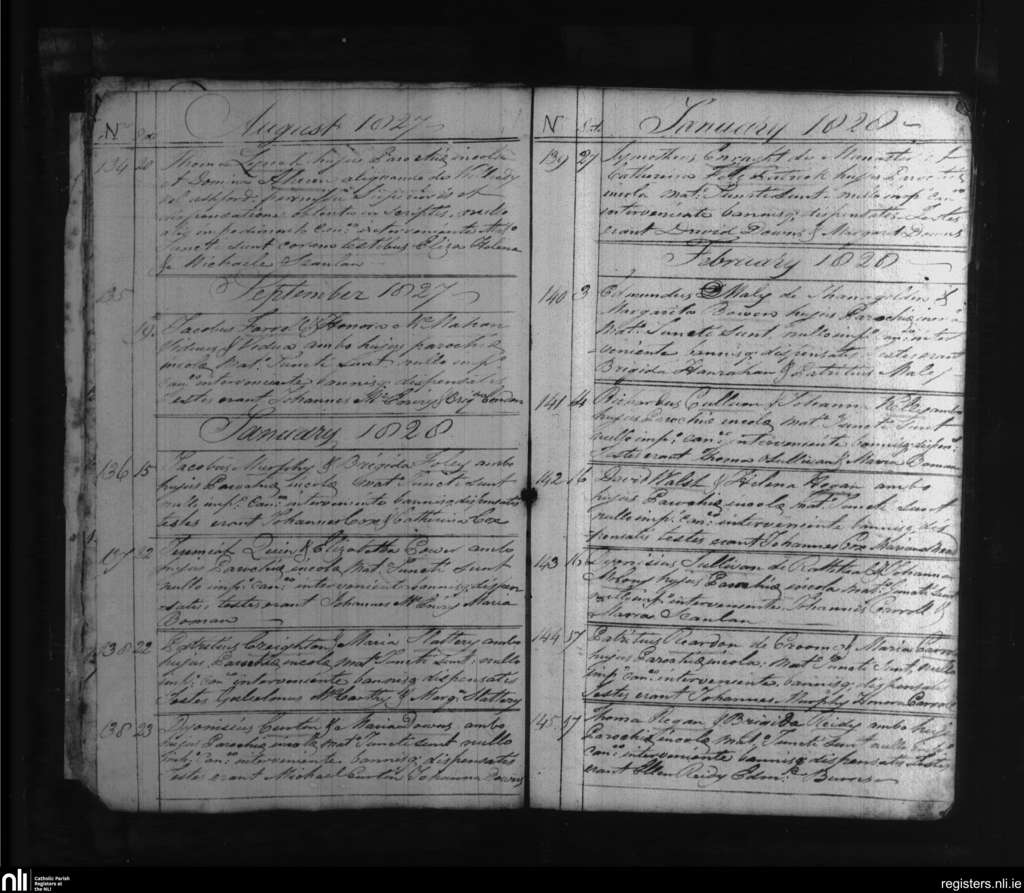 No
August 1827
134 20 Thoma Lynch hujus Parochiæ incola
& Domina
Ashford permissu Superioris et
dispensatione obtenta in Scriptis, nullo
impedimento Can.o interveniente Mat.o
Junct Sunt coram testibus Eliza Helena
& Michaele Scanlan
135 September 1827
19 Jacobus Farrell & Honora McMahon
Viduus & Vidua ambo hujus parochiæ
incolæ Mat. Juncti Sunt nullo imp.o
can.o interveniente bannisq dispensatis
testes erant Johannes McEnery & Brig.
January 1828
136 15 Jacobus Murphy & Brigida Foley ambo
hujus Parochiæ incolæ mat. Juncti Sunt
nullo imp.o Can.o interveniente bannisq dispensatis
testes erant Johannes Cox & Catherina Cox
137 22 Jeremias Quin & Elizabetha Power ambo
hujus Parochiæ incolæ Mat. Juncti Sunt
nullo imp.o can.o interveniente bannisq dispen
satis, testes erant Johannes McEnery Maria
Boman
138 22 Patritius Creighton & Maria Slattery ambo
hujus Parochiæ incolæ mat. Juncti Sunt nullo
imp.o can.o interveniente bannisq dispensatis
Testes McCarthy & Marg. Slattery
138 23 Dyonisius Curtin & Maria Downs ambo
hujus Parochiæ incolæ mat. Juncti sunt nullo
imp.o can.o interveniente bannisq dispensatis
testes erant Michael Curtin Johanna Downs
No
January 1828
139 27 Tymotheus Enraght de Monaster &
Catherina Fitz hujus Parochiæ
incola mat. Juncti Sunt nullo imp.o Can.o
interveniente bannisq dispensatis testes
erant David Downs & Margaret Downs
February 1828
140 3 Edmundus Maly de Shanagolden &
Margarita Bowen hujus Parochiæ incola
Mat. Juncti Sunt nullo imp.o can.o inter
veniente bannisq dispensatis testes erant
Brigida Hanrahan & Patritius Maly
141 14 Richardus Cullivan & Johanna ambo
hujus Parochiæ incolæ mat. Juncti Sunt
nullo imp.o can.o interveniente bannisq dispen.
Testes erant Thoma Sullivan & Maria Boman
142 16 David Walsh & Helena Regan ambo
hujus Parochiæ incolæ Mat. Juncti Sunt
nullo imp.o can.o interveniente bannisq dis
pensatis testes erant Johannes Cox
143 16 Dyonisius Sullivan de Rathkeal & Johanna
Ahony hujus Parochiæ incola mat. Juncti Sunt
nullo imp.o interveniente Johannes Carroll &
Maria Scanlan
144 17 Patritius Reardon de Croom & Maria Carroll
hujus Parochiæ incola: mat. Juncti Sunt nullo
imp.o can.o interveniente bannisq dispensatis
Testes erant Johannes Murphy Honor Carroll
145 17 Thoma Regan & Brigida Reidy ambo hujus
Parochiæ incolæ mat. Juncti Sunt nullo imp.o
can.o interveniente bannisq dispensatis Testes
erant Ellen Reidy Edm. Burns
nli
Catholic Parish
Registers at
the NLI
registers.nli.ie